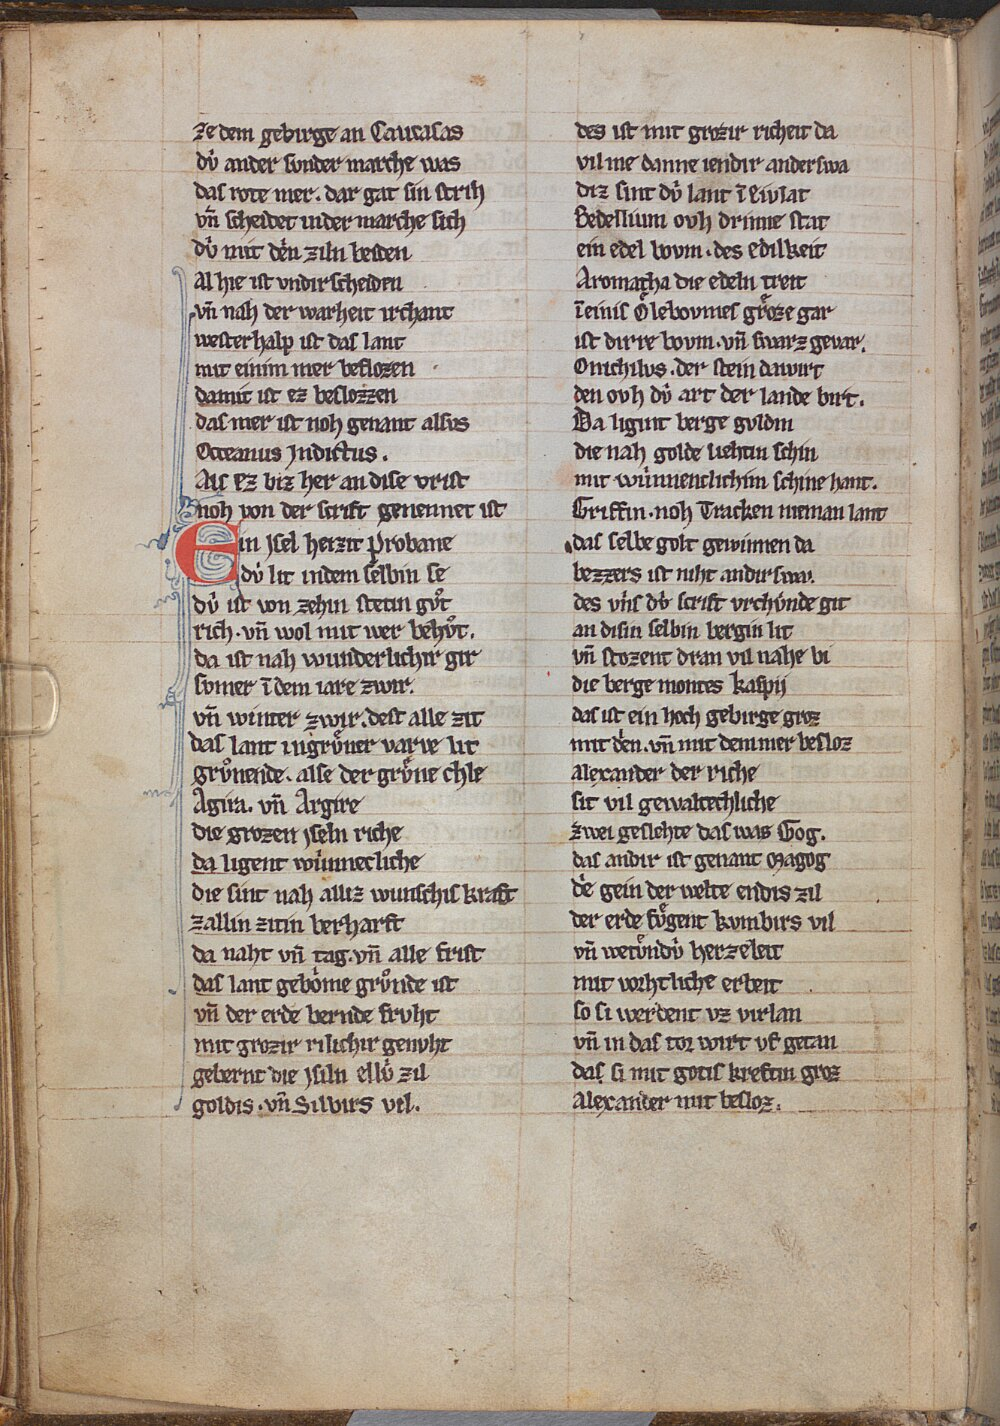 ze dem gebirge an Caucasas
dv̍ ander sonder marche was
das rote mer. dar gat sin strih
vn̄ scheidet inder marche sich
dv̍ mit den ziln besten
Al hie ist vndirscheiden
vn̄ nah der warheit irchant
westerhalp ist das lant
mit einim mer beslozen
damit ist ez beslozzen
das mer ist noh genant alsus
Occeanus Jndictus.
Als ez biz her an dise vrist
noh von der scrift genennet ist
Ein Jsel heizit Probane
dv̍ lit indem selbin se
dv̍ ist von zehin stetin gvͦt
rich. vn̄ wol mit wer behvͦt.
da ist nah wunderlichir gir
svmer ī dem iare zwir.
vn̄ winter zwir. dest alle zit
das lant ingrv̊ner varve lit
grvͦnende. alse der grv̊ne chle
Agira. vn̄ Argire
die grozen Jseln riche
da ligent wunnecliche
die sint nah alliz wunschis kraft
zallin zitin berhaft
da naht vn̄ tag. vn̄ alle frist
das lant gebome grvͦnde ist
vn̄ der erde bernde fruht
mit grozir rilichir genuht
gebernt die Jsiln ellv̍ zil
goldis. vn̄ Silbirs vil.
des ist mit grozir richeit da
vil me danne iendir anderswa
diz sint dv̍ lant ī Eivlat
Bedellium ovh drinne stat
ein edel bovm. des edilkeit
Aromatha die edeln treit
ī einis Ölebovmes grͦze gar
ist dirre bovm. vn̄ swarz gevar.
Onichilus. der stein da wirt
den ovh dv̍ art der lande birt.
Da ligint berge guldin
die nah golde liehtin schin
mit wunnenclichim schine hant.
Griffin. noh Tracken nieman lant
das selbe golt gewinnen da
bezzers ist niht andirswa.
des vns dv̍ scrift vrchunde git
an disin selbin bergin lit
vn̄ stozent dran vil nahe bi
die berge montes kaspij
das ist ein hoch gebirge groz
mit den. vn̄ mit dem mer besloz
Alexander der riche
sit vil gewaltechliche
zwei geslehte das was Gog.
das andir ist genant Magog
de gein der welte endis zil
der erde fvͤgent kumbirs vil
vn̄ wetvndv̍ herzeleit
mit vorhtliche erbeit
so si werdent vz virlan
vn̄ in das tor wirt vf getan
das si mit gotis kreftin groz
Alexander mit besloz.